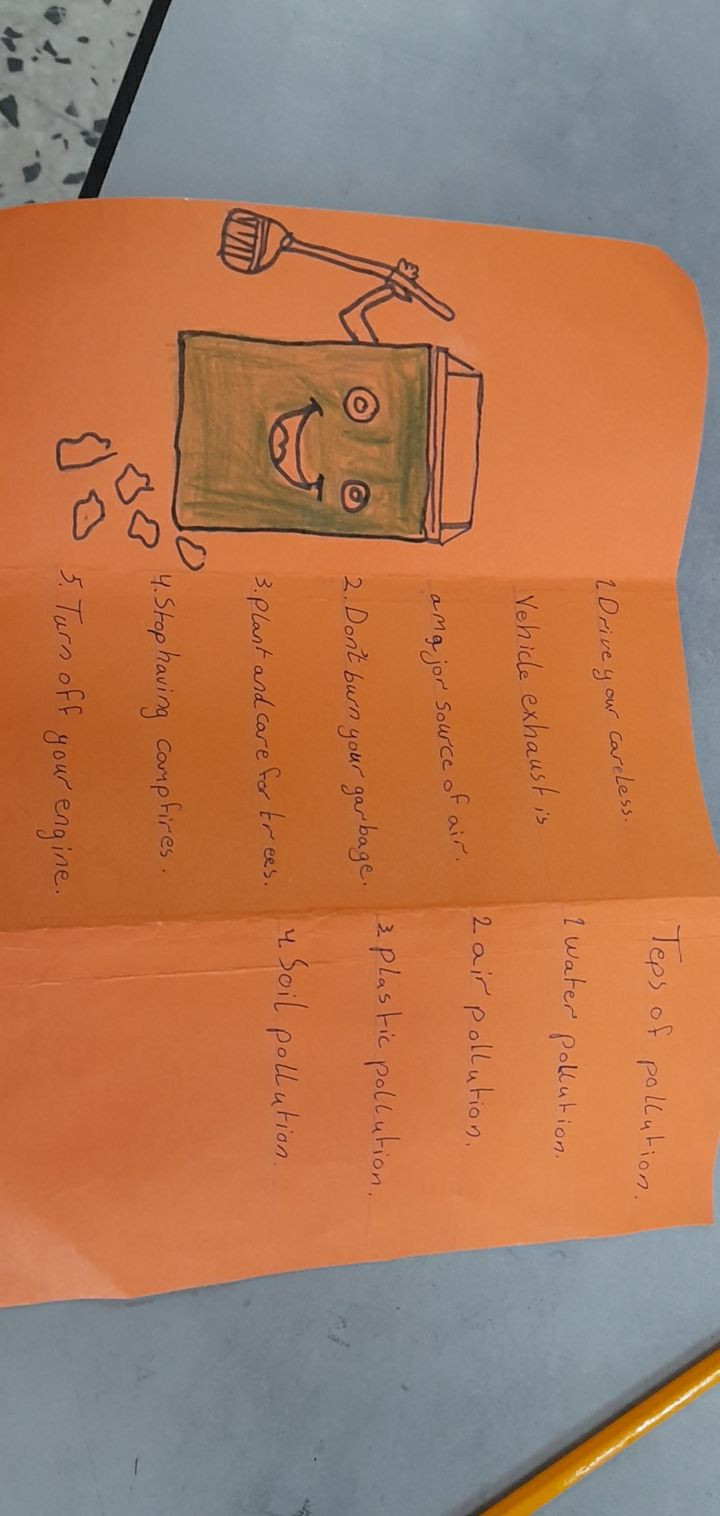 1. Drive your careless.
Vehicle exhaust is
amajor source of air.
2. Don't burn your garbage.
3. plant and care for trees.
4. Stop having campfires.
5. Turn off your engine.
Teps of pollution.
1 water pollution.
2 air pollution.
3 plastic pollution.
4. Soil pollution.